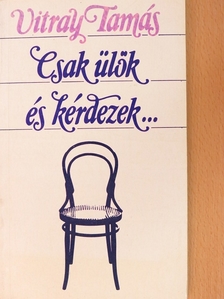 Vitray Tamás
Csak ülök
és kérdezek...